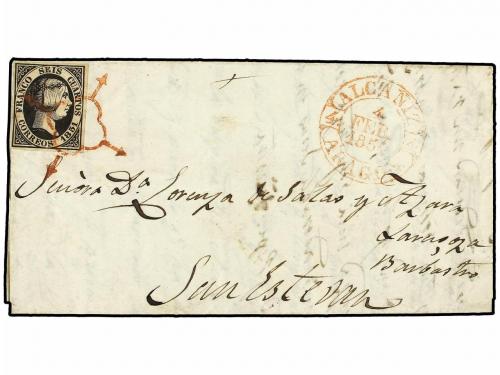 FRANCO SEIS CUARTOS
CORREOS 1851
ALCAÑIZ
4
FEB
185
ARAG
Señora Dª Lorenza de Salas y Azara
Zaragoza
Barbastro
San Estevan